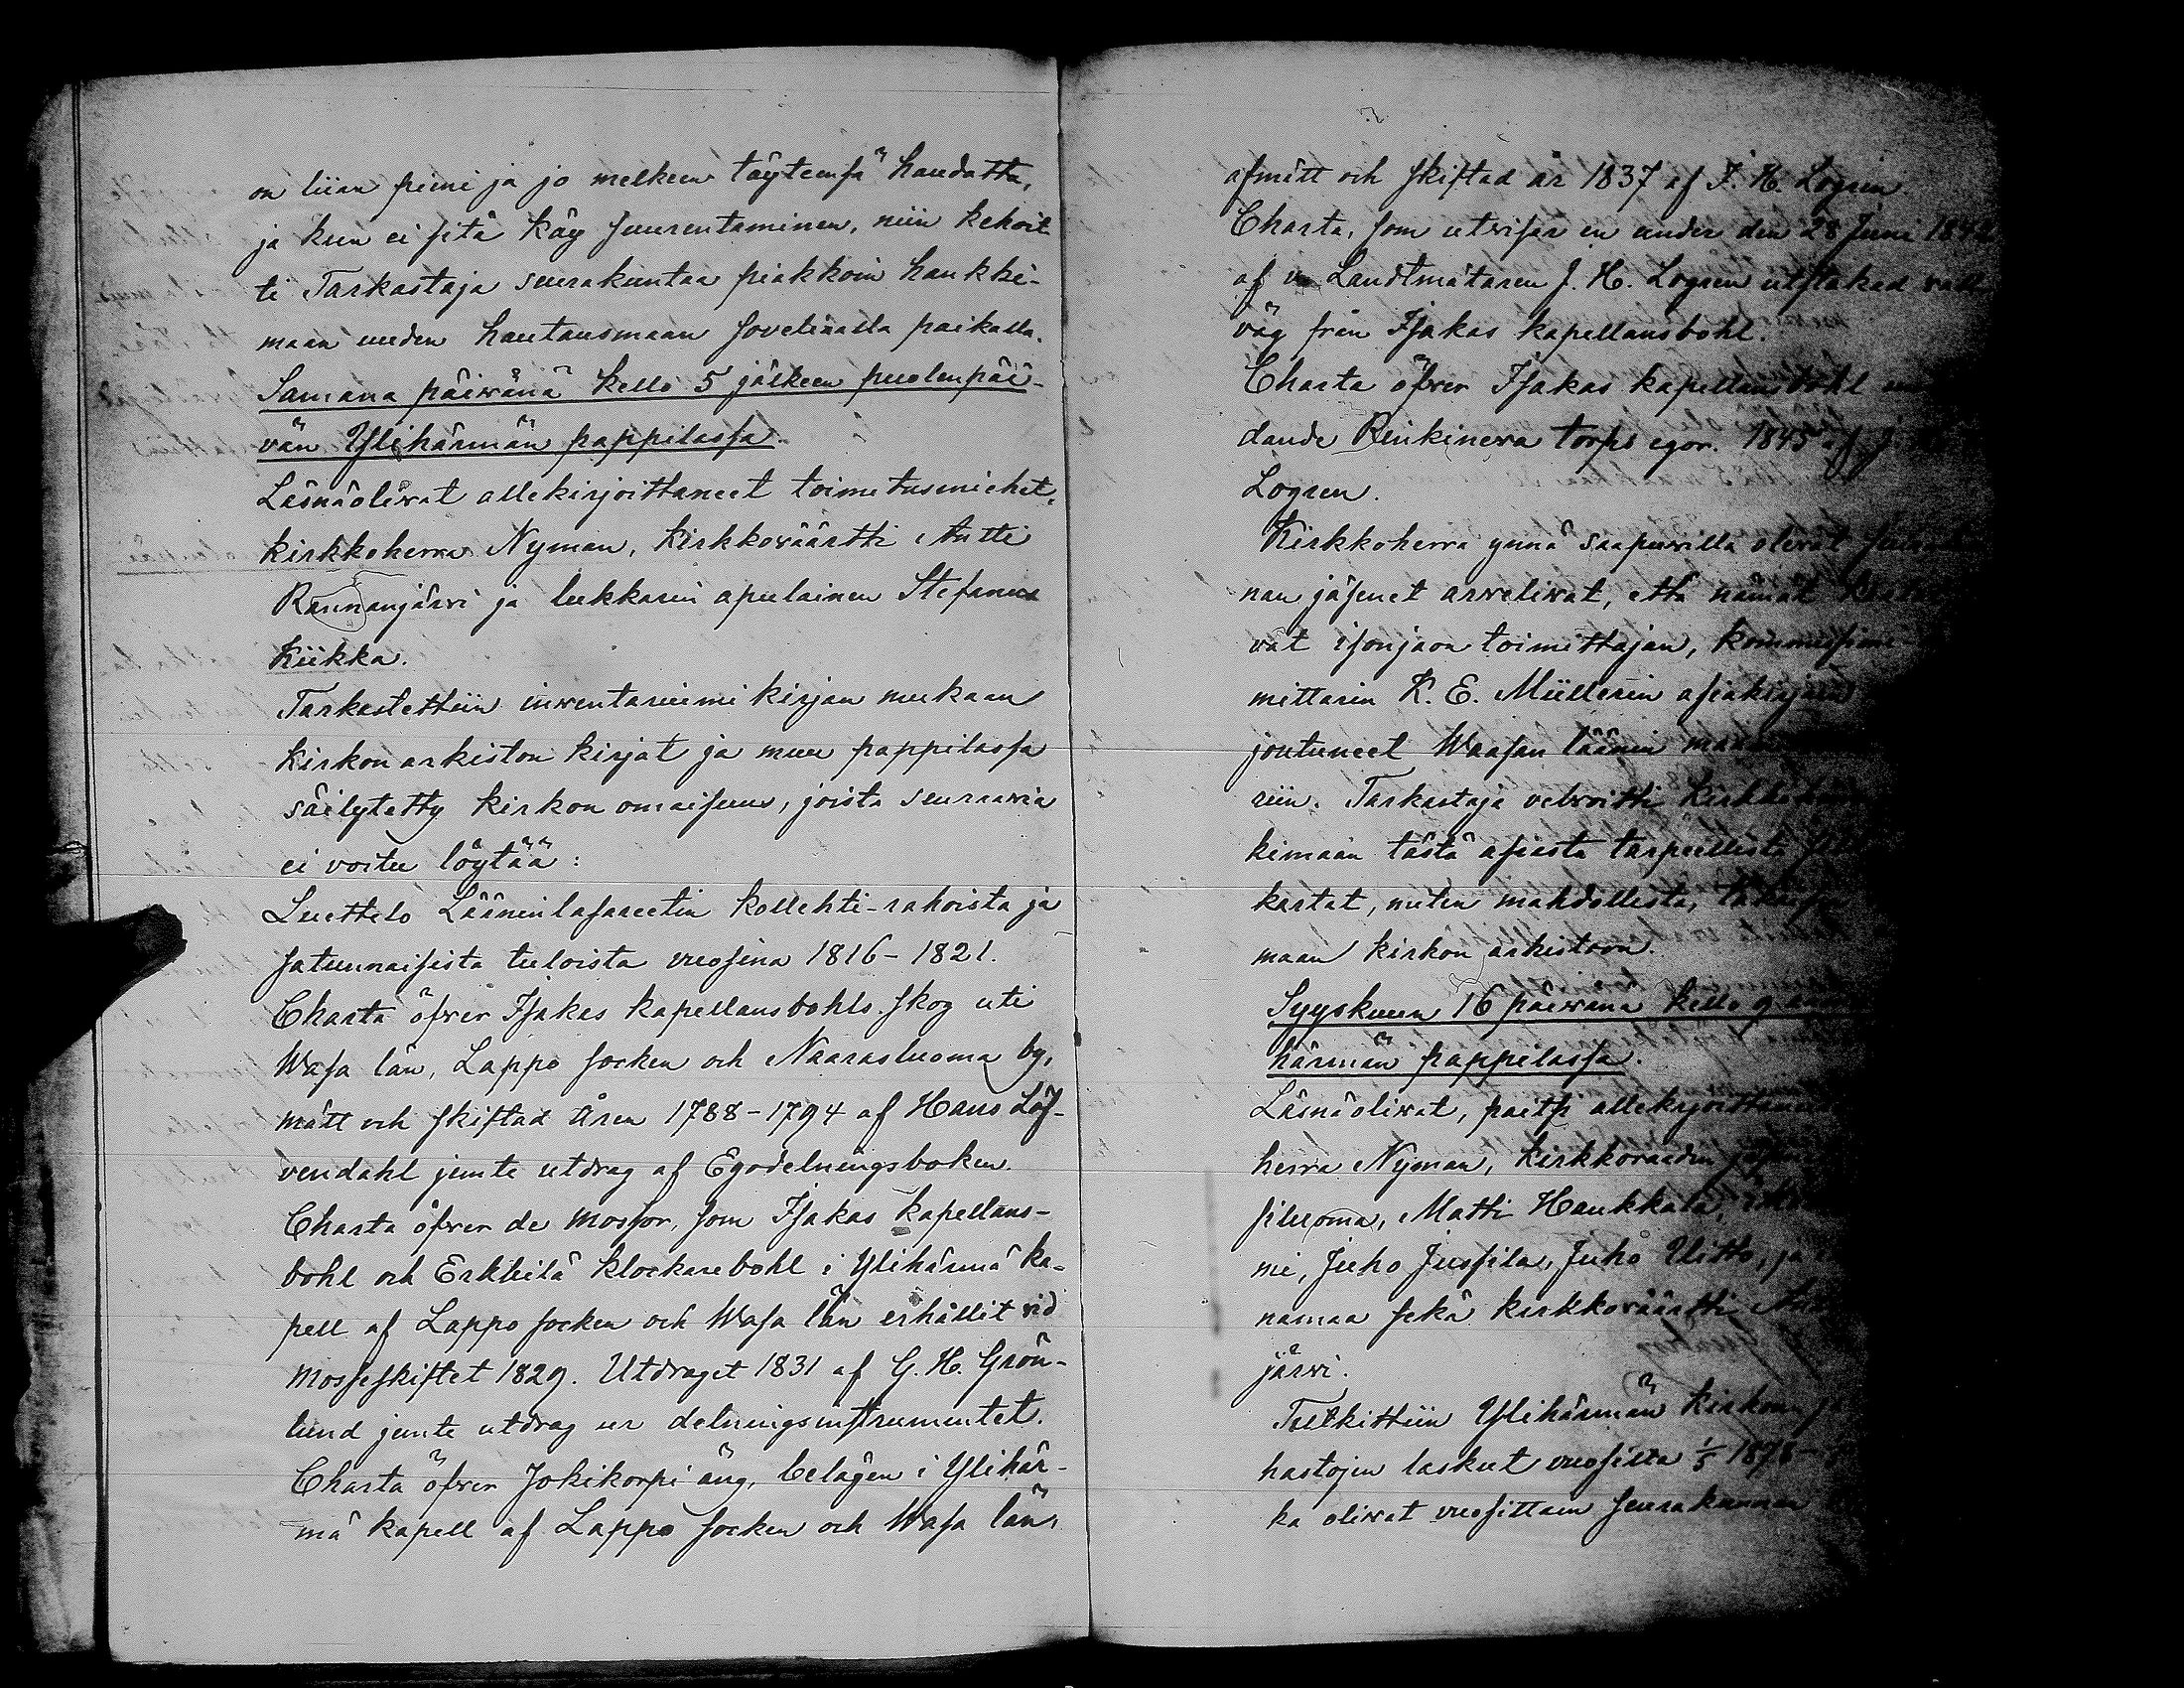 on liian pieni ja jo melkeen täytensä haudattu,
ja kun ei sitä käy suurentaminen, niin kehoit-
ti Tarkastaja seurakuntaa piakkoin hankki-
maan uuden hautausmaan soveliaalla paikalla.
Samana päiwänä kello 5 jälkeen puolenpäi-
vän Ylihärmän pappilassa.
Läsnäoliwat allekirjoittaneet toimitusmiehet,
kirkkoherra Nyman, kirkkoväärtti Antti
Rannanjärvi ja lukkarin apulainen Stefanus
Kiikka.
Tarkastettiin inventariumikirjan mukaan
kirkon arkiston kirjat ja muu pappilassa
säilytetty kirkon omaisuus, joista seuraavia
ei voitu löytää:
Luettelo Lääninlasareetin kollehti-rahoista ja
satunnaisista tuloista vuosina 1816-1821.
Charta öfver Isakas kapellansbohls skog uti
Wasa län, Lappo socken och Naarasluoma by,
mätt och skiftad åren 1788-1794 af Hans Löf-
vendahl jemte utdrag af Egodelningsboken.
Charta öfver de mossor, som Isakas kapellans-
bohl och Erkkilä klockarebohl i Ylihärmä ka-
pell af Lappo socken och Wasa län erhållit vid
mosseskiftet 1829. Utdraget 1831 af G. H. Grön-
lund jemte utdrag ur delningsinstrumentet.
Charta öfver Jokikorpi äng, belägen i Ylihär-
mä kapell af Lappo socken och Wasa län,
afmätt och skiftad år 1837 af J. H. Logren.
Charta, som utvisar en under den 28 Juni
af Landtmätaren J. H. Logren utstakad
väg från Isakas kapellansbohl.
Charta öfver Isakas kapellansbohl
dande Renkineva torps egor. 1845 af J.
Logren.
Kirkkoherra ynnä saapuvilla olevat
nan jäsenet arveliwat, että nämät
vat isonjaon toimittajan,
mittarin K. E. Müllerin asiakirjain
joutuneet Waasan läänin
riin. Tarkastaja velvoitti
kimaan tästä asiasta tarpeellista
kartat, miten mahdollista,
maan kirkon arkistoon.
Syyskuun 16 päiwänä kello 9
härmän pappilassa.
Läsnäoliwat, paitsi allekirjoittaneet
herra Nyman, kirkkoraadin
siluoma, Matti Haukkala,
mi, Juho Jussila, Juho Ulitto, ja
namaa sekä kirkkoväärtti
järvi.
Tutkittiin Ylihärmän kirkon
hastojen laskut vuosilta 1/5 1878-
ka oliwat vuosittain seurakunnan